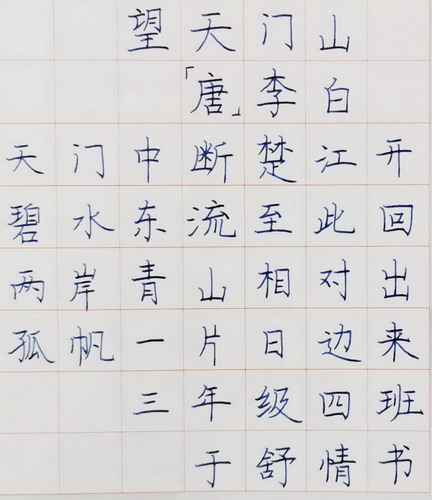 望天门山
「唐」李白
天门中断楚江开
碧水东流至此回
两岸青山相对出
孤帆一片日边来
三年级四班
于舒情书